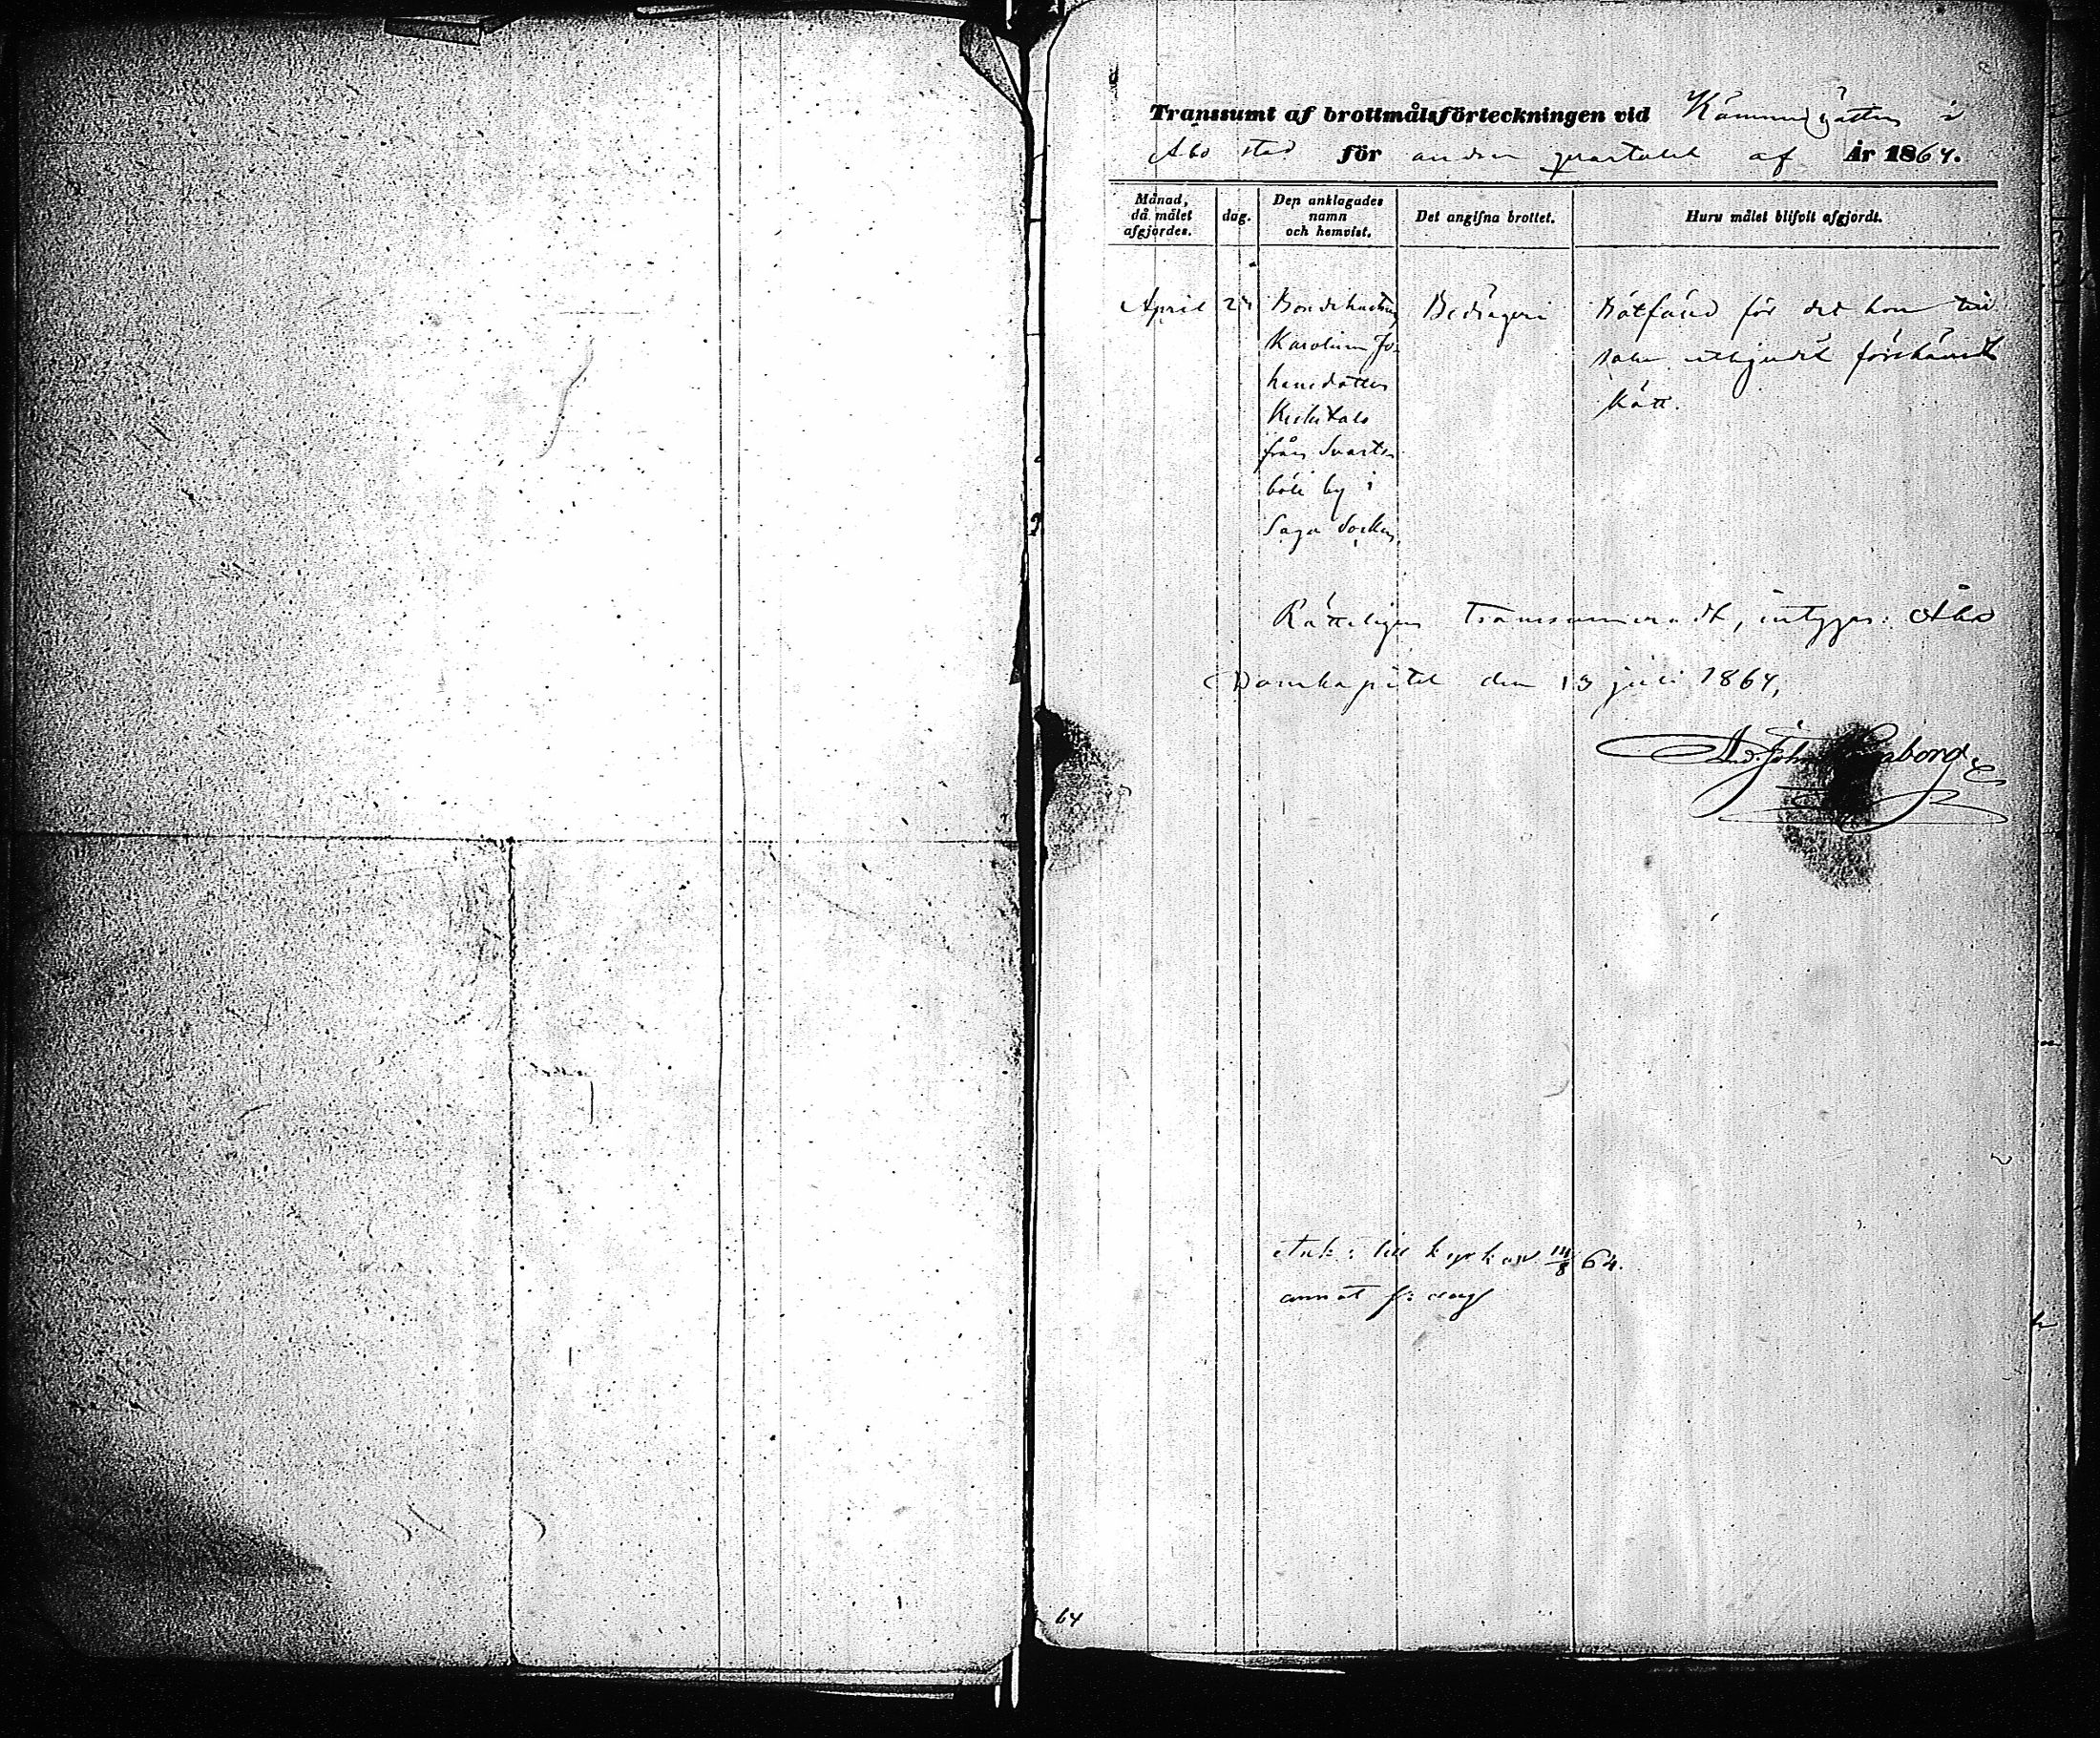 Transsumt af brottmålsförteckningen vid Kämnersrätten i
Åbo stad för andra quartalet af År 1864.
Månad, då målet afgjordes.
dag.
Den anklagades namn och hemvist.
Det angifna brottet.
Huru målet blifvit afgjordt.
April
Bondehustrun
Karolina Jo-
hansdotter
från Svarte-
böle by i
Sagu Socken.
Bedrägeri
Bötfäld för det hon till
salu utbjudit förskämdt
kött.
Rätteligen transsumeradt, intygar: Åbo
Domkapitel den 13 juli 1864.
And. Joh.
Ank: till kyrkan 14/8 64.
annat s: dag
64